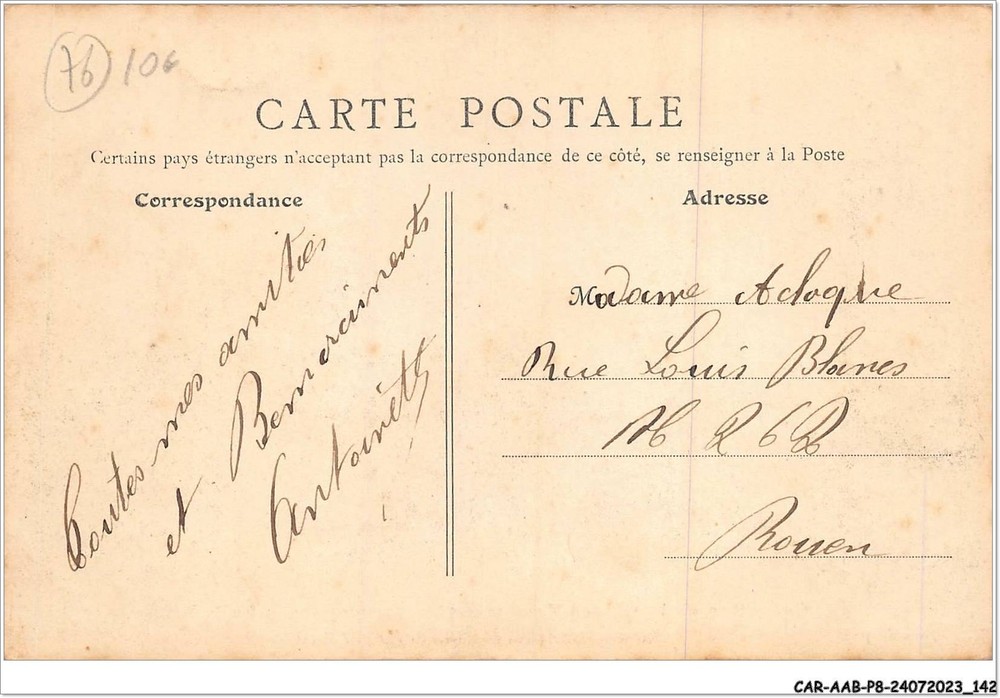 76 106
CARTE POSTALE
Certains pays étrangers n'acceptant pas la correspondance de ce côté, se renseigner à la Poste
Correspondance
Toutes mes amitiés
et Remerciments
Antoinette
Adresse
Madame Acloque
Rue Louis Blanes
Rouen
CAR-AAB-P8-24072023_142